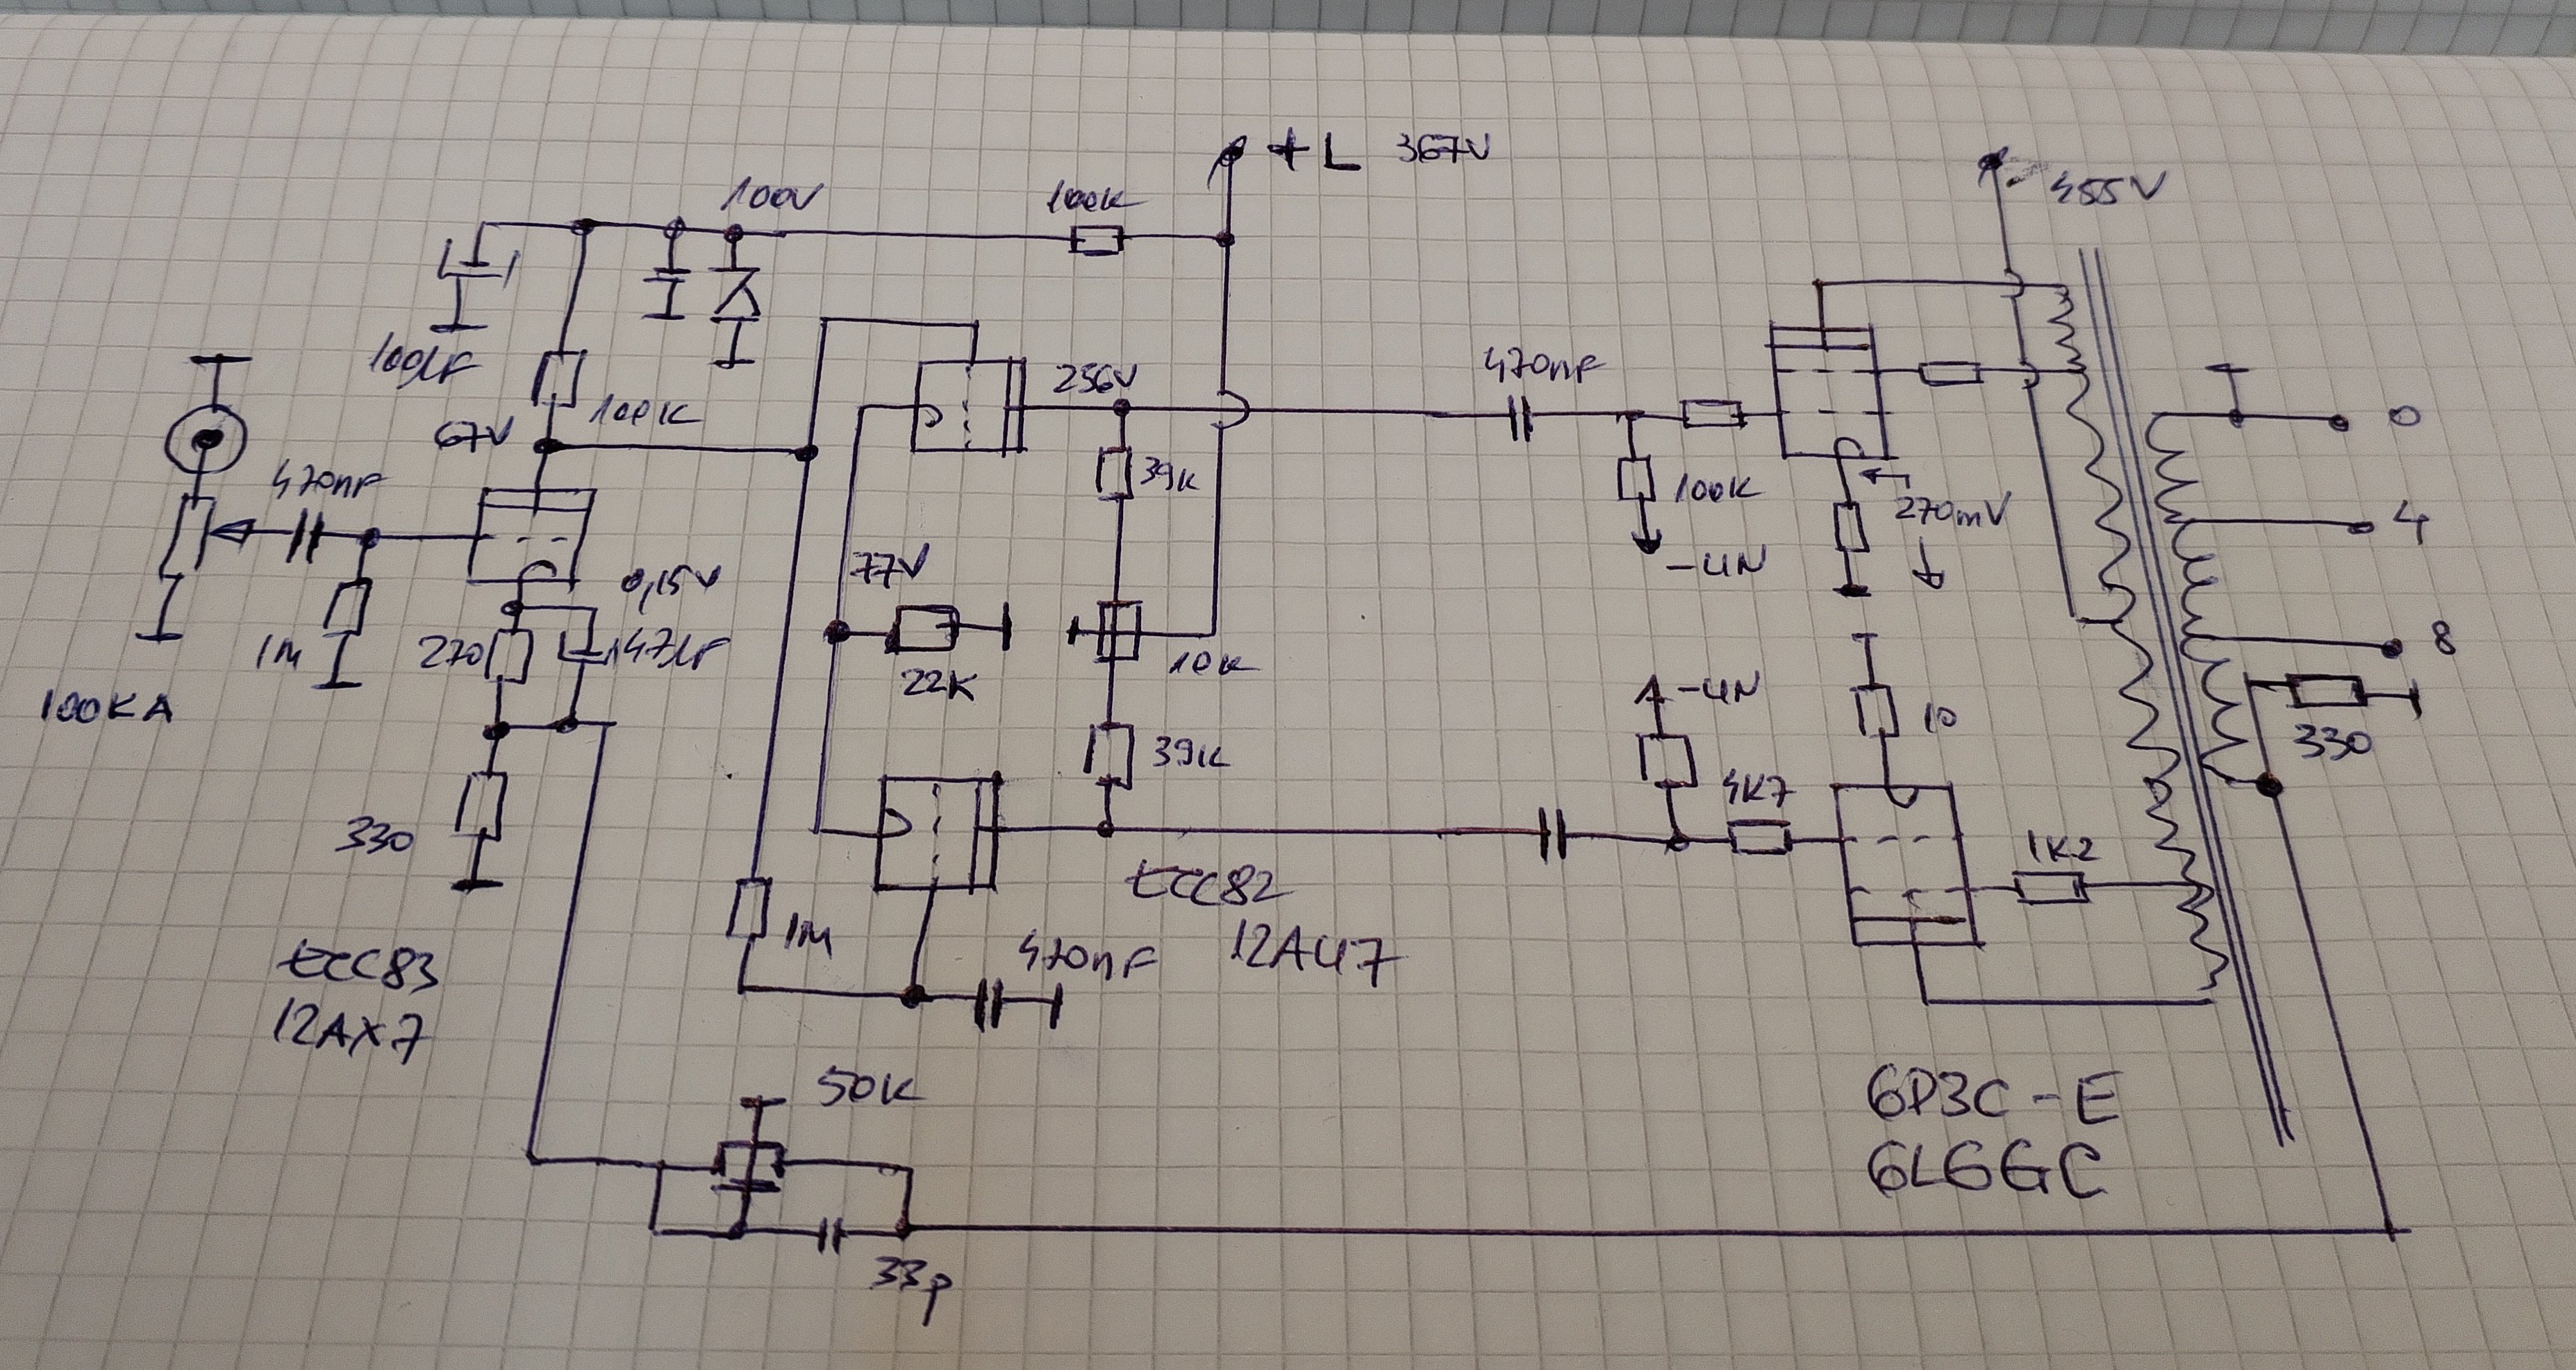 +L 367V
455V
100V
100K
100µF
100K
256V
470nF
67V
0
470nF
39K
100K
270mV
4
-UN
77V
0,15V
1M
270
47µF
22K
10K
-UN
8
100KA
10
330
39K
4K7
330
1K2
ECC82
12AU7
1M
470nF
ECC83
12AX7
50K
6P3C-E
6L6GC
33p